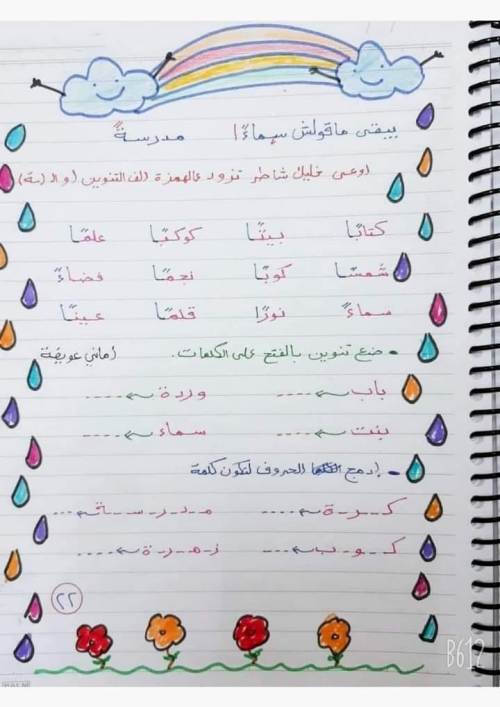 يبقى ماقولش سماءًا مدرسةً
اوعى خليك شاطر تزود عالهمزة الف التنوين (والـ ة)
كتابًا بيتًا كوكبًا علمًا
شمسًا كوبًا نجمًا فضاءً
سماءً نورًا قلمًا عينًا
• ضع تنوين بالفتح على الكلمات. أماني عويضة
باب ← .... وردة ← ....
بنت ← .... سماء ← ....
• إدمج الحروف لتكون كلمة
كـ ـر ـة ← .... مـ ـد ـر ـسـ ـة ← ....
كـ ـو ـب ← .... ز ـهـ ـر ـة ← ....
٢٢
B612